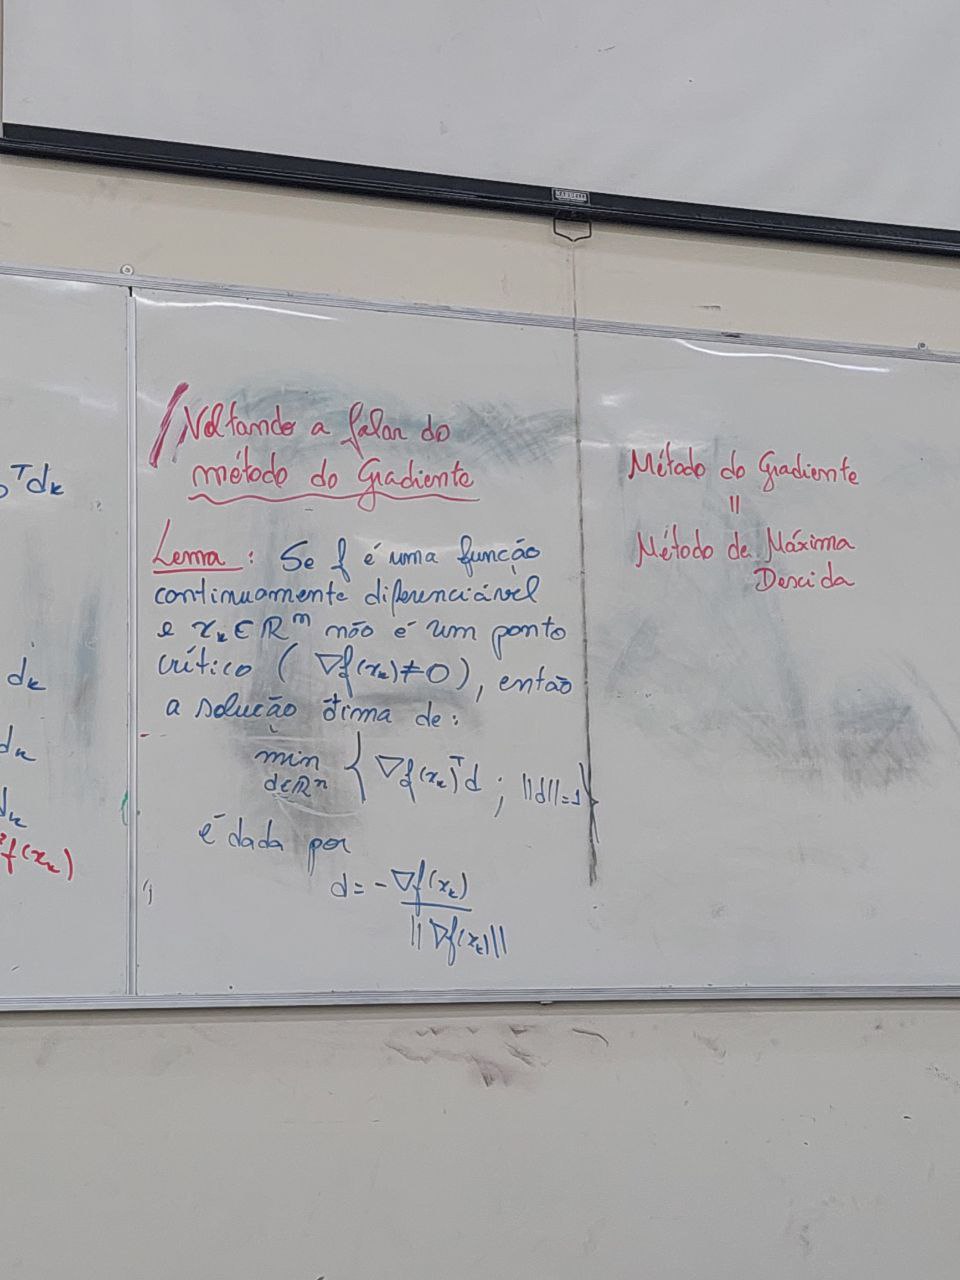 ᵀdₖ
dₖ
dₖ
dₖ
f(xₖ)
Voltando a falar do
método do Gradiente
Lema: Se f é uma função
continuamente diferenciável
e xₖ ∈ ℝⁿ não é um ponto
crítico ( ∇f(xₖ) ≠ 0 ), então
a solução ótima de:
min { ∇f(xₖ)ᵀd ; ||d||=1 }
d∈ℝⁿ
é dada por
d = - ∇f(xₖ)
||∇f(xₖ)||
Método do Gradiente
=
Método de Máxima
Descida